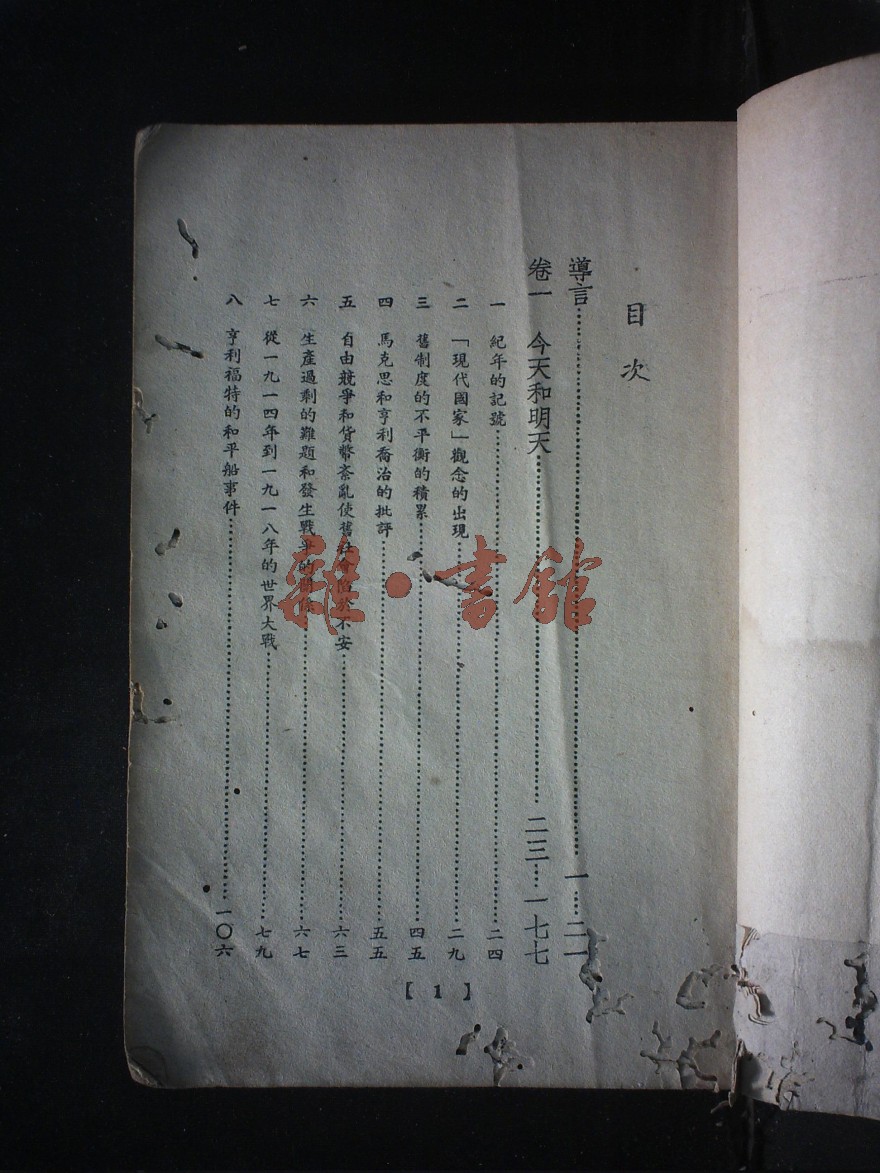 目次
導言……一……二一
卷一　今天和明天……二三……一七七
一　紀年的記號……二四
二　「現代國家」觀念的出現……二九
三　舊制度的不平衡的積累……四五
四　馬克思和亨利喬治的批評……五五
五　自由競爭和貨幣紊亂使舊社會陷於不安……六三
六　生產過剩的難題和發生戰爭的關係……六七
七　從一九一四年到一九一八年的世界大戰……七九
八　亨利福特的和平船事件……一〇六
【1】
雜·書館